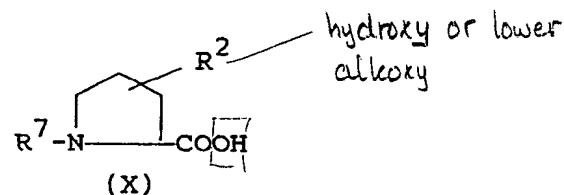 hydroxy or lower
R² alkoxy
R⁷-N COOH
(X)